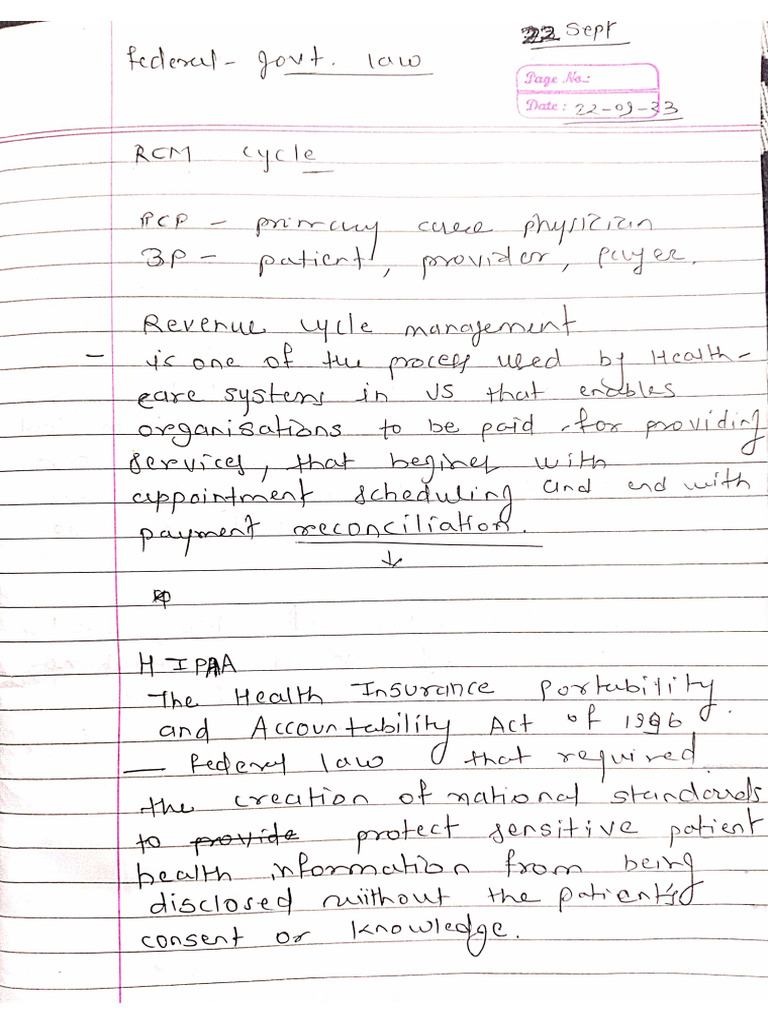 22 Sept
Federal - govt. law
Page No.:
Date: 22-09-23
RCM cycle
PCP - primary care physician
3P - patient, provider, payer.
Revenue cycle management
- is one of the process used by Health-
care systems in US that enables
organisations to be paid for providing
services, that begines with
appointment scheduling and end with
payment reconciliation.
↓
HIPAA
The Health Insurance Portability
and Accountability Act of 1996.
— Federal law that required
the creation of national standards
to provide protect sensitive patient
health information from being
disclosed without the patient's
consent or knowledge.